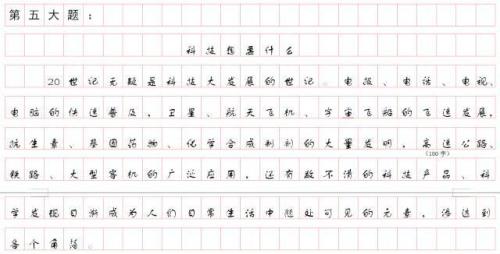 第五大题：
科技想要什么
20世纪无疑是科技大发展的世纪。电报、电话、电视、
电脑的快速普及，卫星、航天飞机、宇宙飞船的飞速发展，
抗生素、基因药物、化学合成制剂的大量发明，高速公路、
(100字)
铁路、大型客机的广泛应用，还有数不清的科技产品、科
学发现日渐成为人们日常生活中随处可见的元素，浸透到
各个角落。